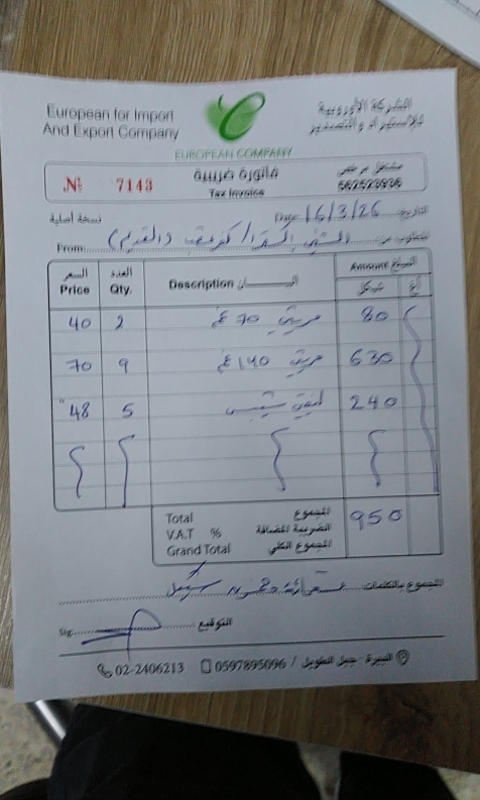 European for Import
And Export Company
الشركة الأوروبية
للاستيراد والتصدير
EUROPEAN COMPANY
№ 7143
فاتورة ضريبية
Tax Invoice
مشتغل مرخص
562523936
نسخة أصلية
Date 16/3/26 التاريخ
From: المطلوب من
السعر Price
العدد Qty.
Description البيــــــان
المبلغ Amount
شيكل
أغ
40 2 70 غم 80
70 9 140 غم 630
48 5 240
Total المجموع 950
V.A.T % الضريبة المضافة
Grand Total المجموع الكلي
المجموع بالكلمات: تسعمائة وخمسون شيكل
Sig. التوقيع
02-2406213 0597895096 / البيرة - جبل الطويل